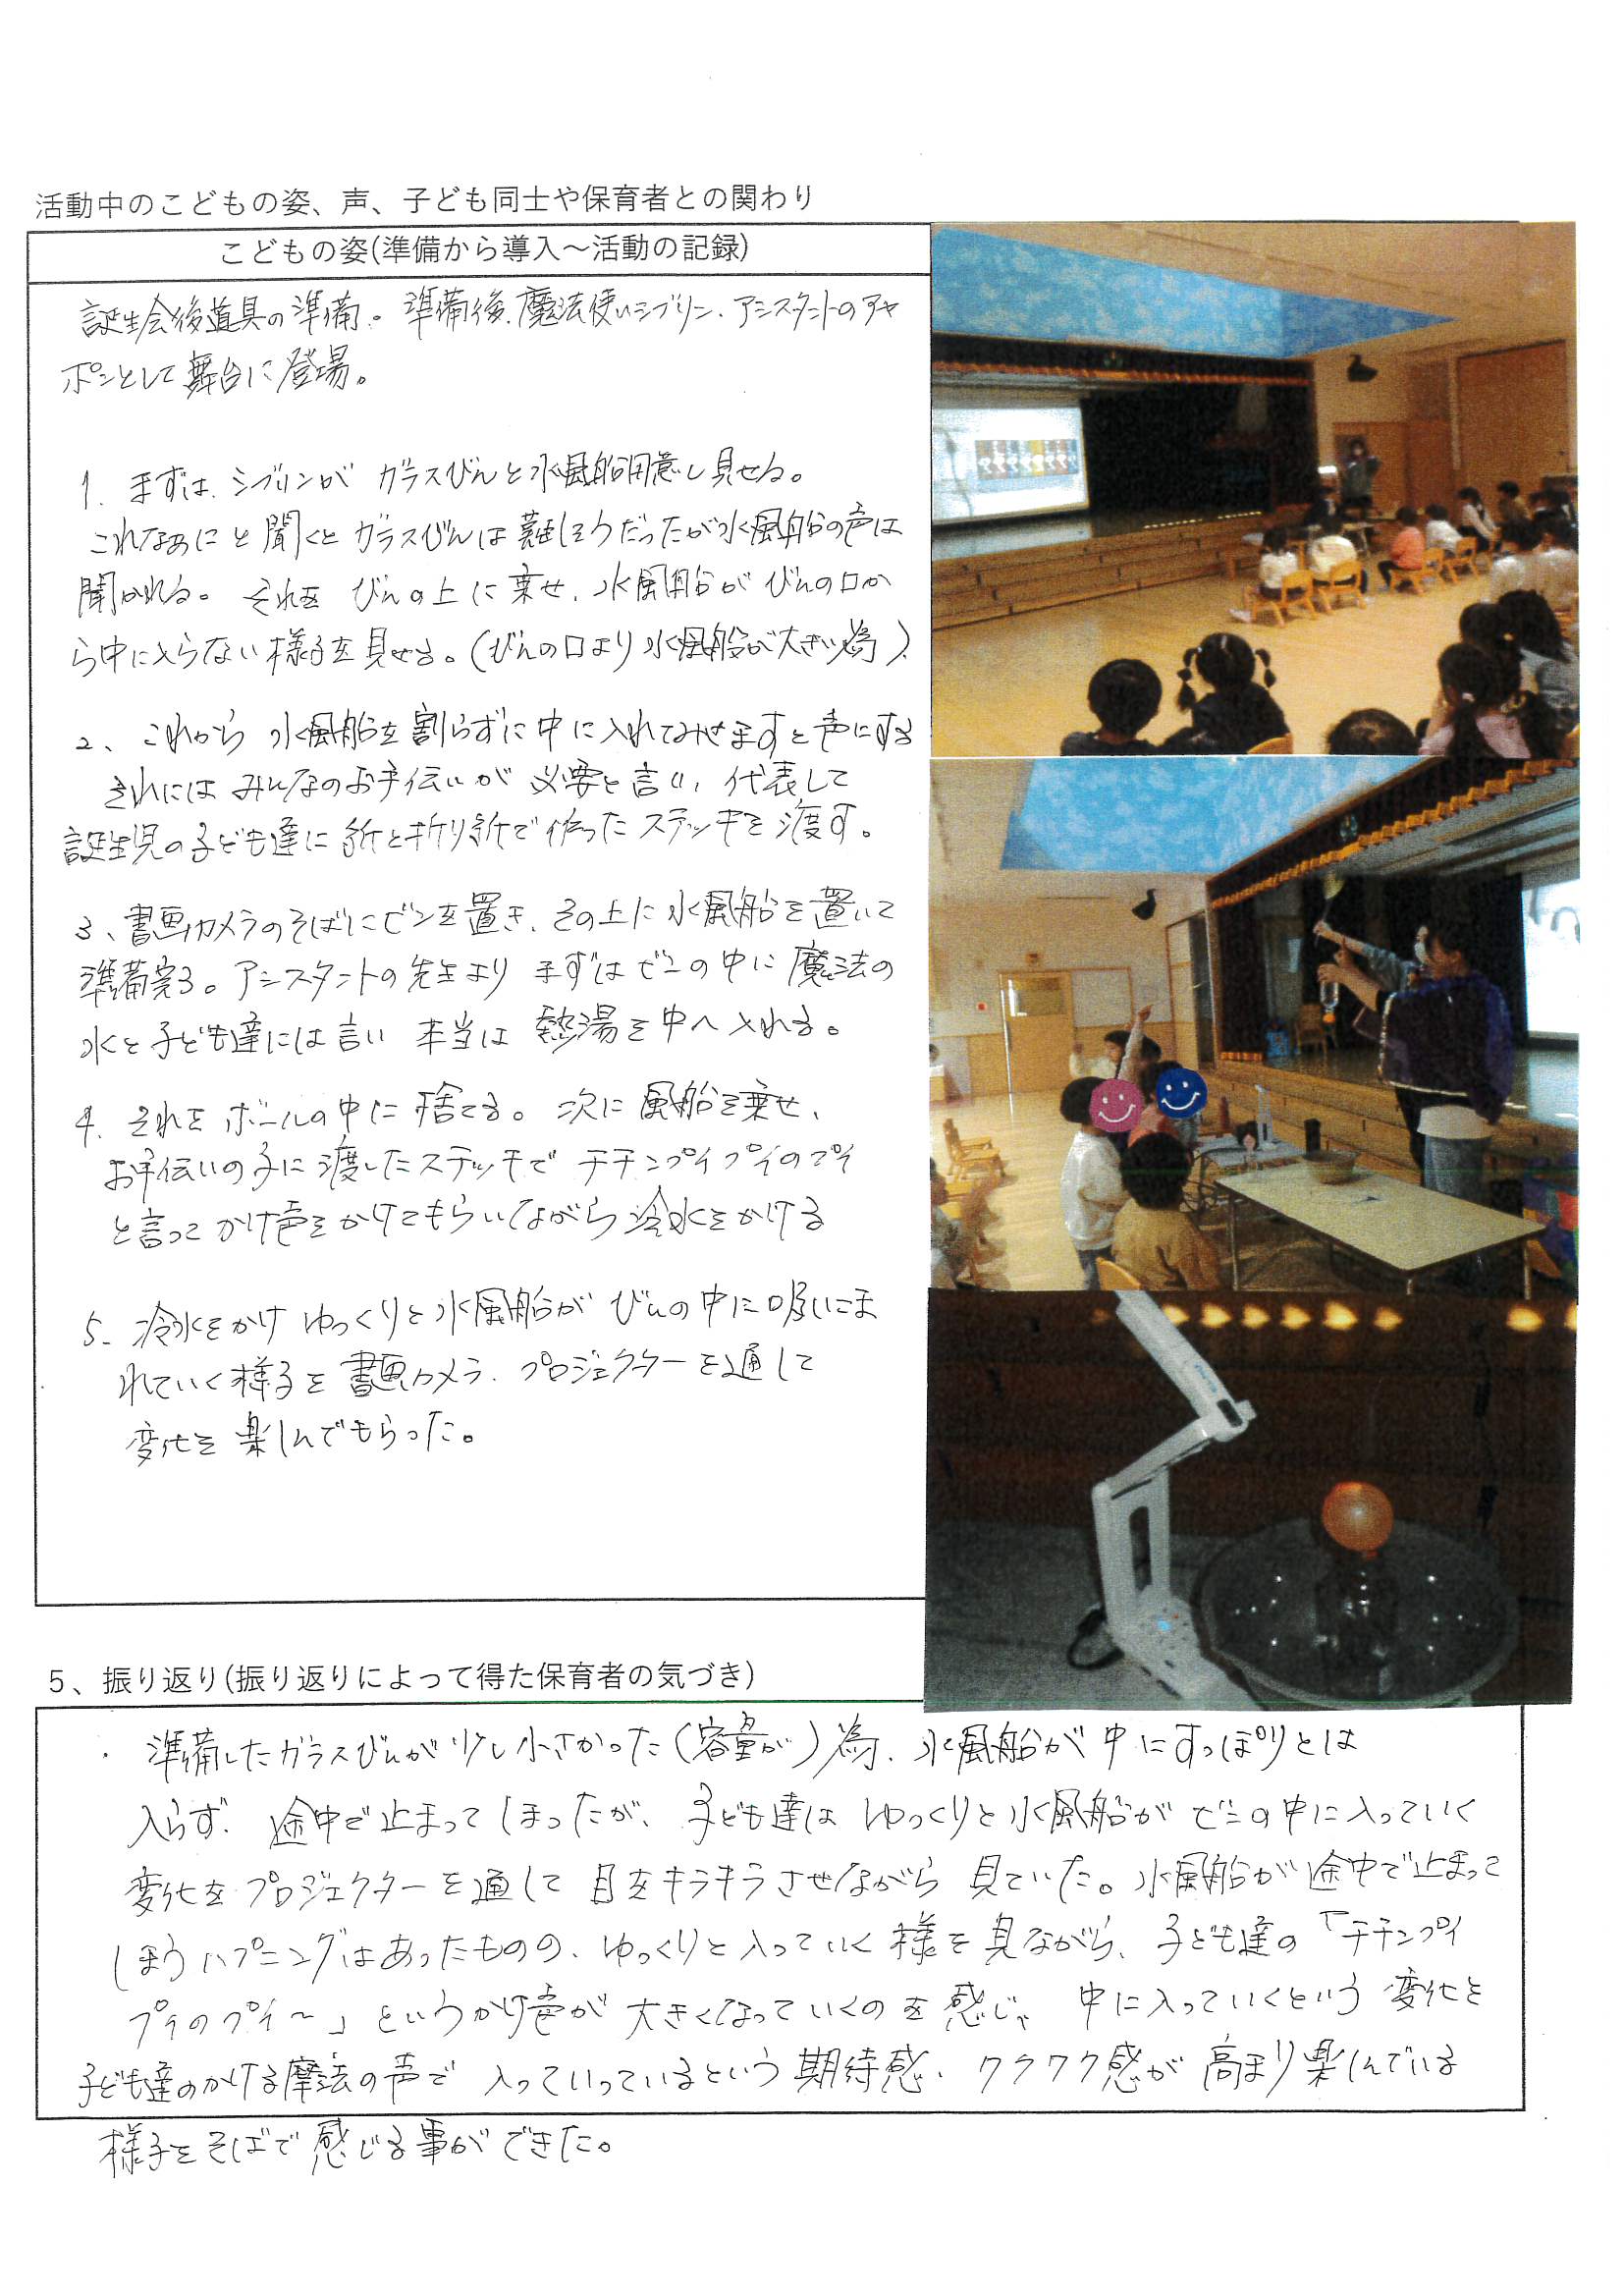 活動中のこどもの姿、声、子ども同士や保育者との関わり
こどもの姿(準備から導入～活動の記録)
誕生会後道具の準備。準備後、魔法使いシブリン、アシスタントのアヤ
ポンとして舞台に登場。
1. まずは、シブリンが ガラスびんと水風船用意し見せる。
これなあにと聞くとガラスびんは難しそうだったが水風船の声は
聞かれる。それを びんの上に乗せ、水風船が びんの口か
ら中に入らない様子を見せる。(びんの口より水風船が大きい為)
2、これから 水風船を割らずに中に入れてみせますと声にする
それにはみんなのお手伝いが 必要と言い、代表して
誕生児の子ども達に紙と折り紙で作ったステッキを渡す。
3、書画カメラのそばにビンを置き、その上に水風船を置いて
準備完了。アシスタントの先生より まずはビンの中に魔法の
水と子ども達には言い 本当は 熱湯を中へ入れる。
4. それをボールの中に捨てる。次に風船を乗せ、
お手伝いの子に渡したステッキで チチンプイプイのプイ
と言って かけ声をかけてもらいながら冷水をかける
5. 冷水をかけ ゆっくりと水風船が びんの中に吸いこま
れていく様子を 書画カメラ、プロジェクターを通して
変化を楽しんでもらった。
5、振り返り(振り返りによって得た保育者の気づき)
・準備したガラスびんが少し小さかった(容量が)為、水風船が中にすっぽりとは
入らず、途中で止まってしまったが、子ども達はゆっくりと水風船がビンの中に入っていく
変化をプロジェクターを通して目をキラキラさせながら見ていた。水風船が途中で止まって
しまうハプニングはあったものの、ゆっくりと入っていく様を見ながら、子ども達の「チチンプイ
プイのプイ～」というかけ声が大きくなっていくのを感じ、中に入っていくという変化を
子ども達のかける摩法の声で 入っていっているという期待感、ワクワク感が高まり楽しんでいる
様子をそばで感じる事ができた。